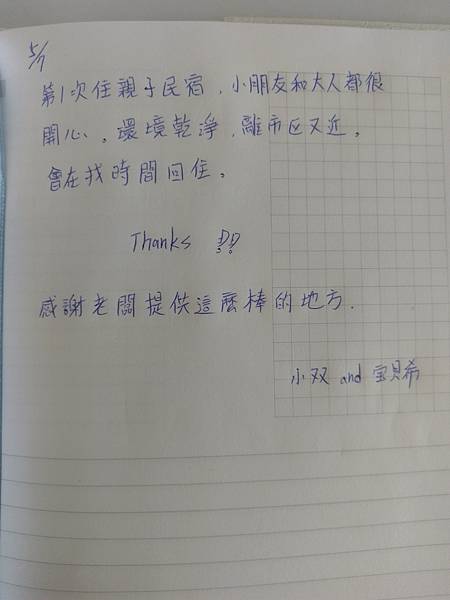 5/7
第1次住親子民宿,小朋友和大人都很
開心。環境乾淨,離市区又近。
會在找時間回住。
Thanks !!
感謝老闆提供這麼棒的地方.
小双 and 宝貝希